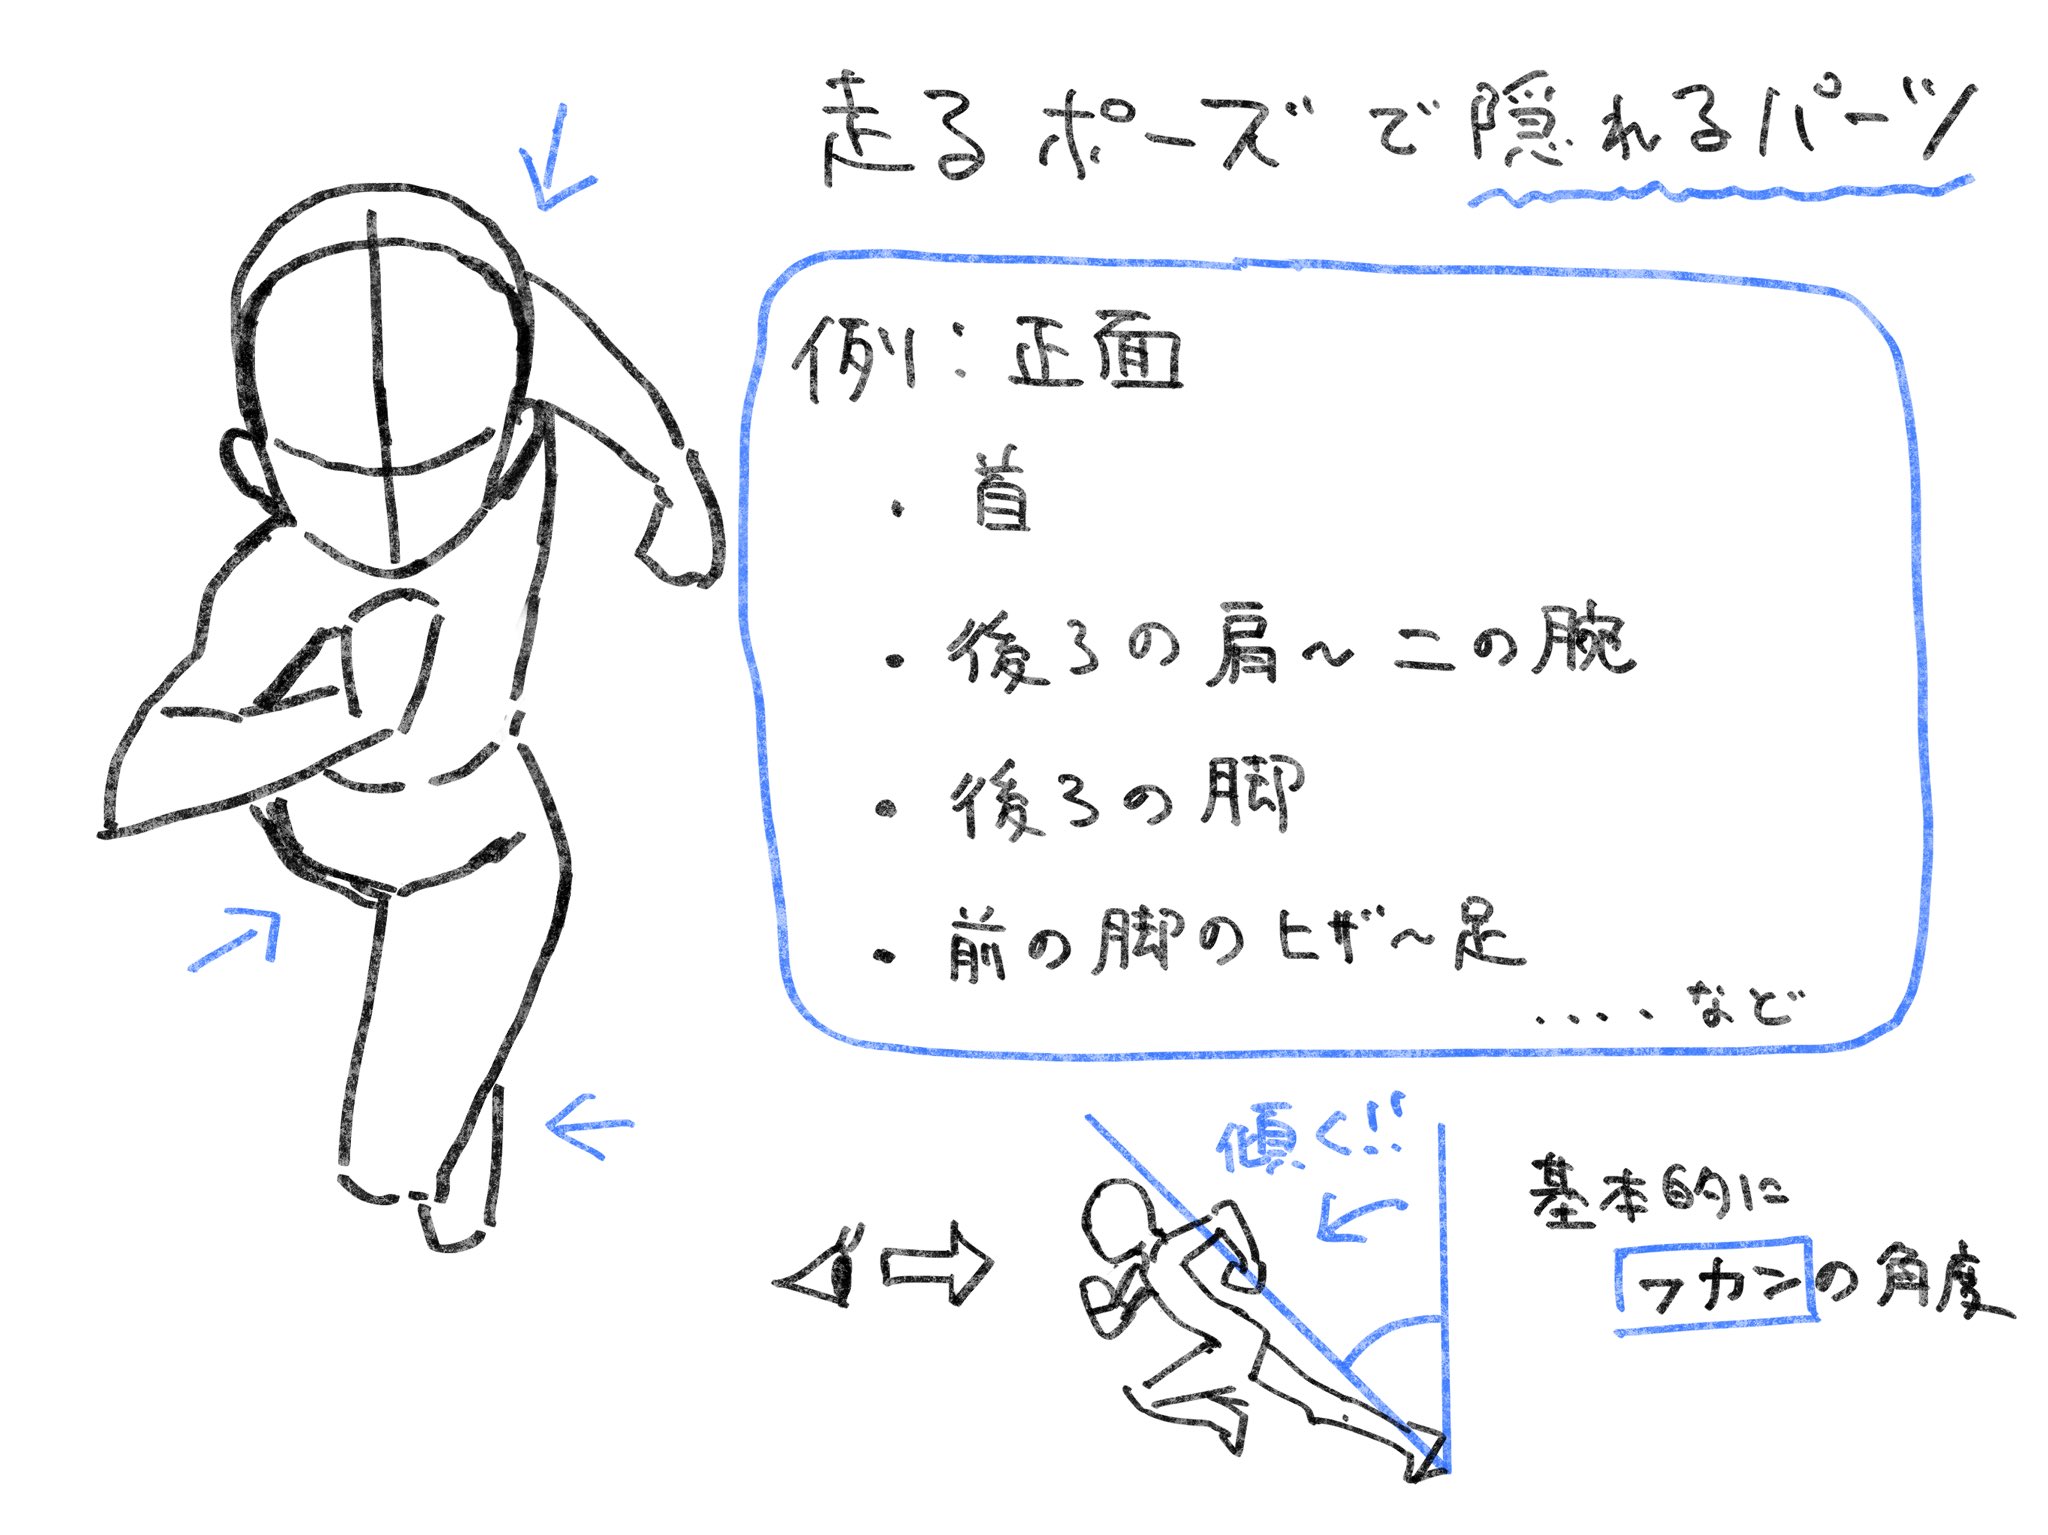 走るポーズで隠れるパーツ
例：正面
・首
・後ろの肩～二の腕
・後ろの脚
・前の脚のヒザ～足
‥‥など
傾く!!
基本的に
フカンの角度